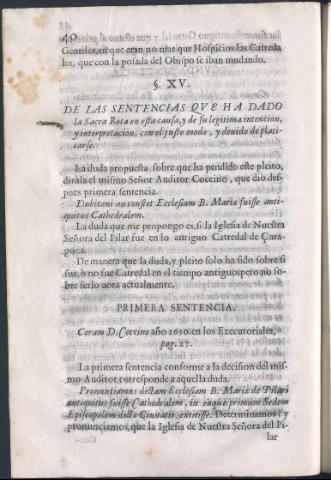 40
Gentiles, en que eran no mas que Hospicios las Catreda
les, que con la posada del Obispo se iban mudando.
§. XV.
DE LAS SENTENCIAS QVE HA DADO
la Sacra Rota en esta causa, y de su legitima intencion,
y interpretacion, con el justo modo, y deuido de plati-
carse.
La duda propuesta sobre que ha pendido este pleito,
dirála el mismo Señor Auditor Coccino, que dio des-
pues primera sentencia.
Dubitaui an constet Ecclesiam B. Mariæ fuisse anti-
quitus Cathedralem.
La duda que me propongo es, si la Iglesia de Nuestra
Señora del Pilar fue en lo antiguo Catredal de Çara-
goça.
De manera que la duda, y pleito solo ha sido sobre si
fue, ò no fue Catredal en el tiempo antiguo; pero no so-
bre serlo aora actualmente.
PRIMERA SENTENCIA.
Coram D. Coccino año 1630. en los Executoriales,
pag. 27.
La primera sentencia conforme a la decision del mis-
mo Auditor corresponde a aquella duda.
Pronuntiamus dictam Ecclesiam B. Mariæ de Pilari
antiquitus fuisse Cathedralem, in eaque primum Sedem
Episcopalem dictæ Ciuitatis extitisse. Determinamos, y
pronunciamos, que la Iglesia de Nuestra Señora del Pi-
lar